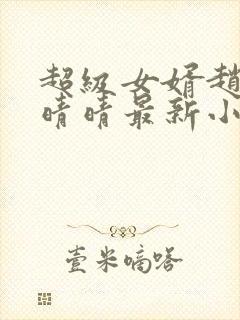 超级女婿赵
晴晴最新小
壹米嘀嗒